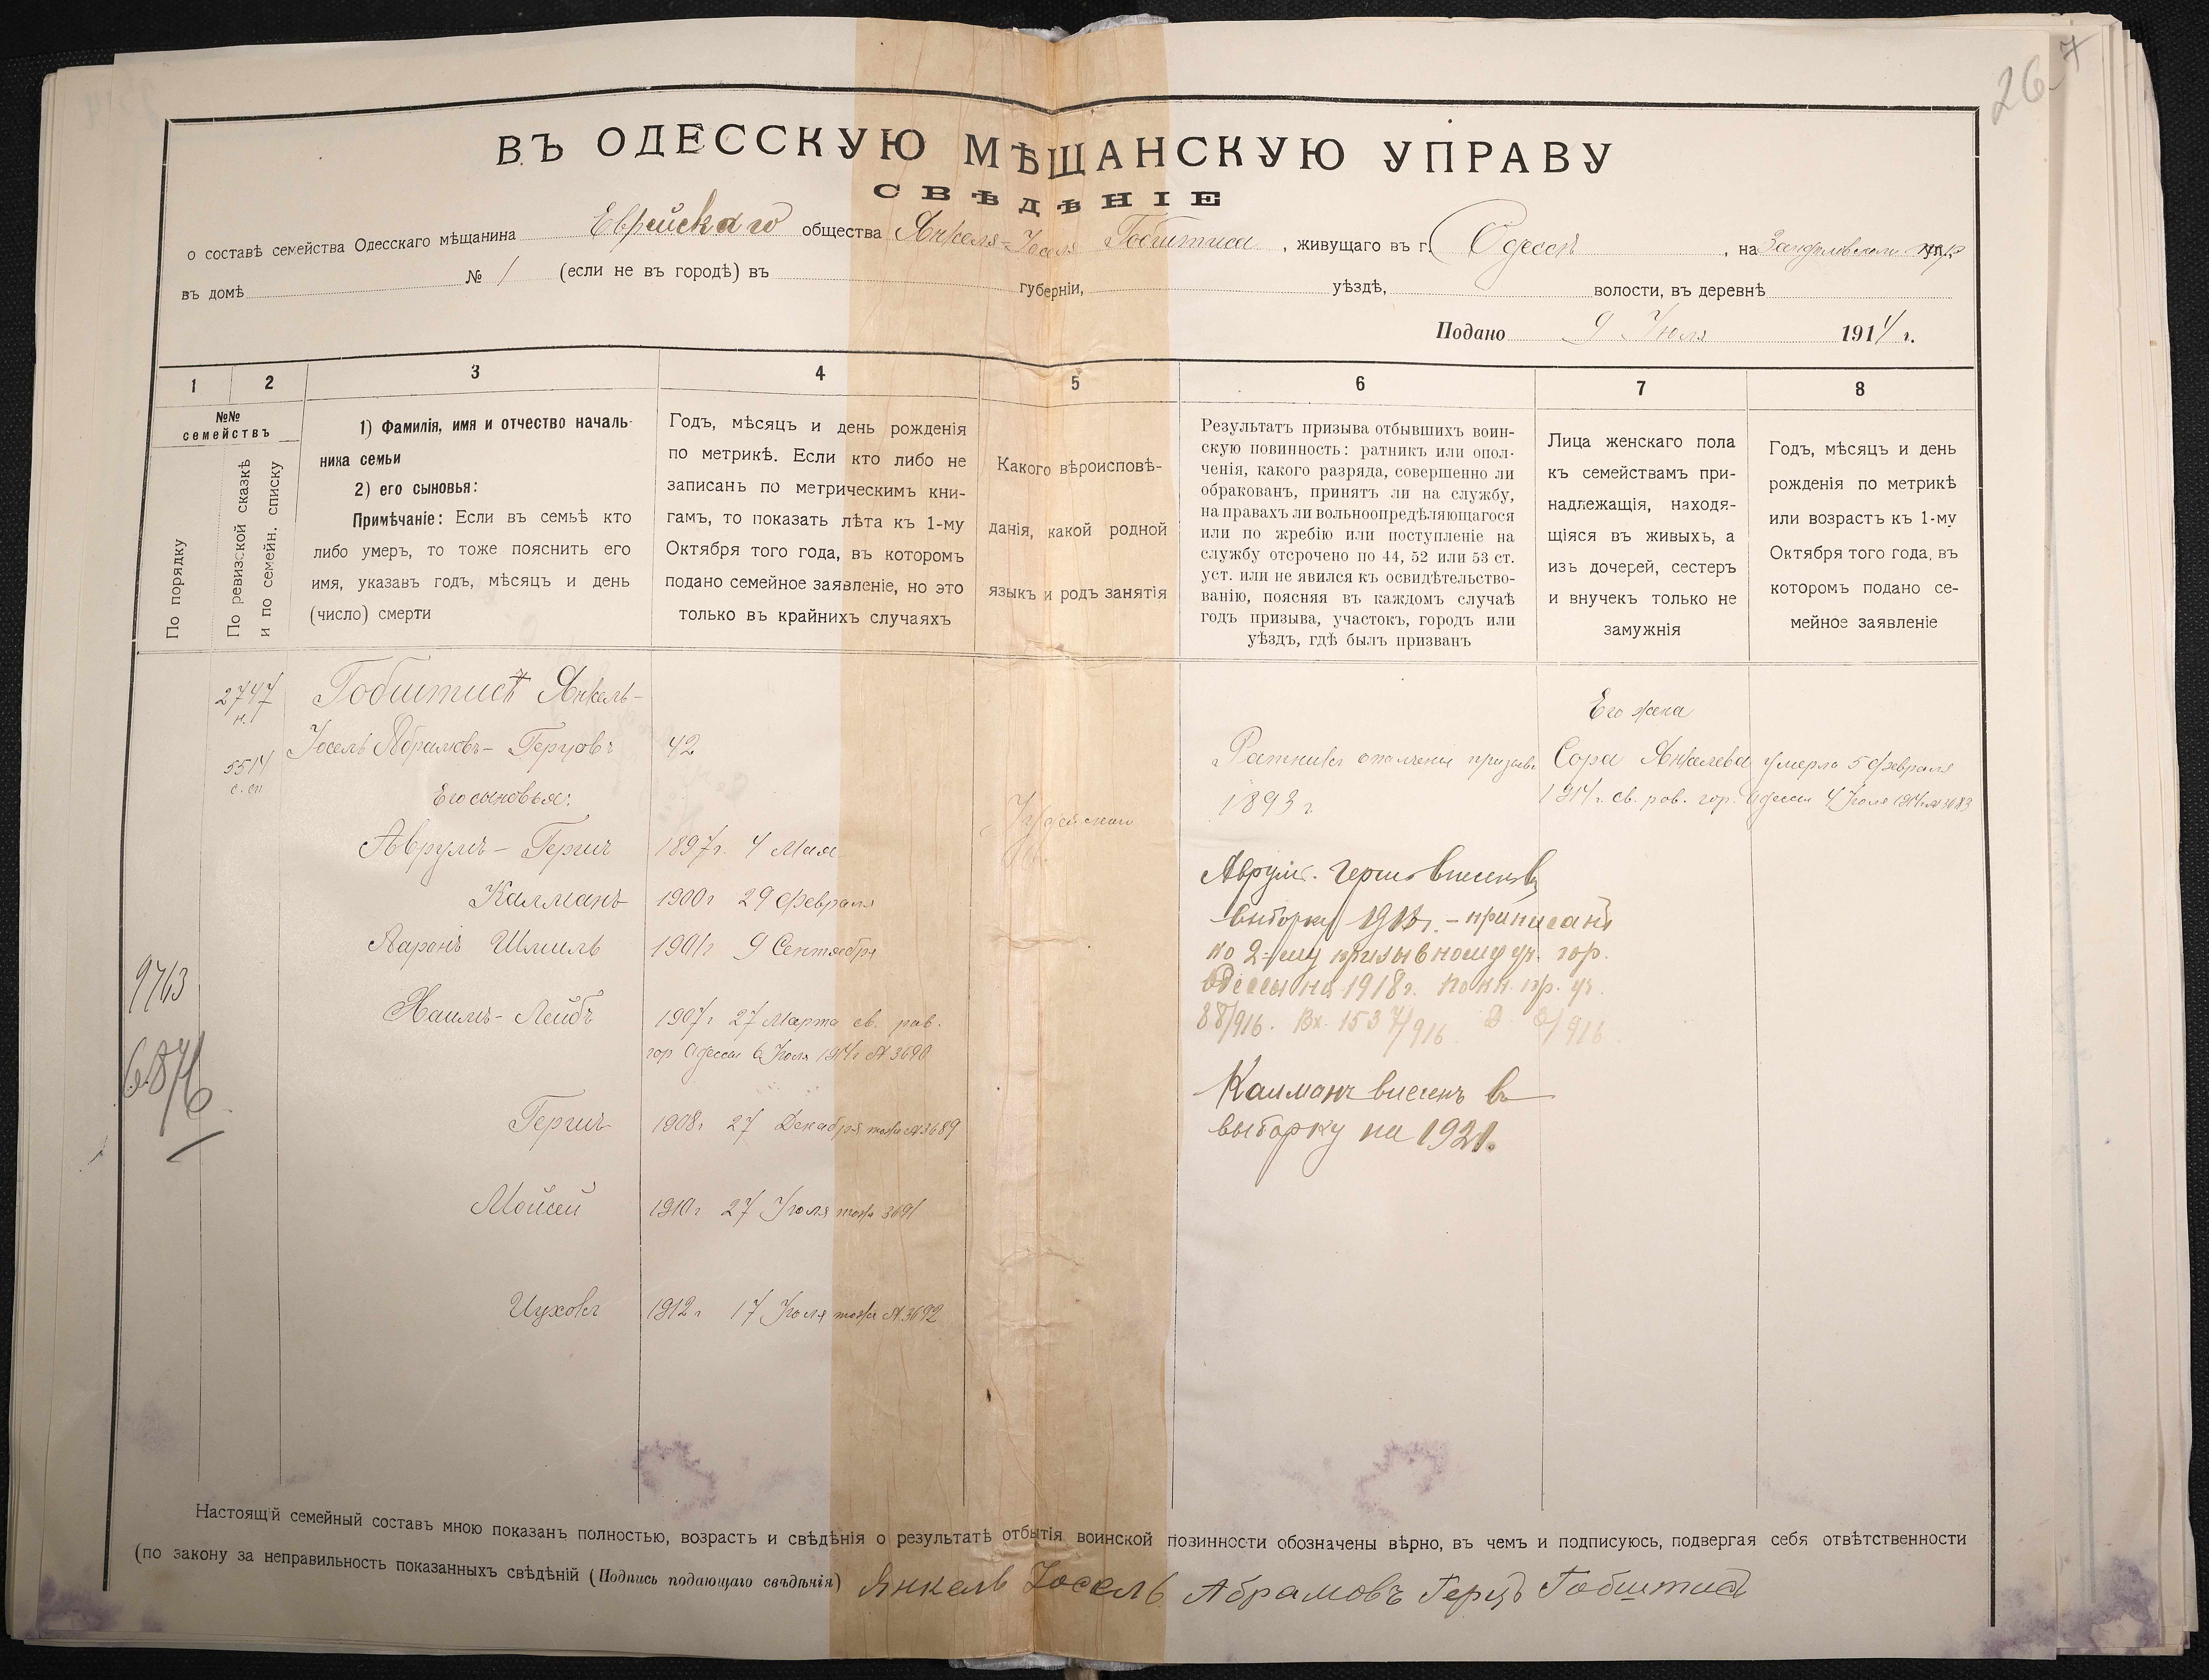 26
7
ВЪ ОДЕССКУЮ МѢЩАНСКУЮ УПРАВУ
СВѢДѢНІЕ
о составѣ семейства Одесскаго мѣщанина Еврейскаго общества Янкеля-Іоселя Гобштиса, живущаго въ г. Одессѣ, на ул.
въ домѣ № 1 (если не въ городѣ) въ губерніи, уѣздѣ, волости, въ деревнѣ
Подано 9 Іюля 1914 г.
1 2 3 4 5 6 7 8
№№ семействъ
По порядку
По ревизской сказкѣ
и по семейн. списку
1) Фамилія, имя и отчество началь-
ника семьи
2) его сыновья:
Примѣчаніе: Если въ семьѣ кто
либо умеръ, то тоже пояснить его
имя, указавъ годъ, мѣсяцъ и день
(число) смерти
Годъ, мѣсяцъ и день рожденія
по метрикѣ. Если кто либо не
записанъ по метрическимъ кни-
гамъ, то показать лѣта къ 1-му
Октября того года, въ которомъ
подано семейное заявленіе, но это
только въ крайнихъ случаяхъ
Какого вѣроисповѣ-
данія, какой родной
языкъ и родъ занятія
Результатъ призыва отбывшихъ воин-
скую повинность: ратникъ или опол-
ченія, какого разряда, совершенно ли
обракованъ, принятъ ли на службу,
на правахъ ли вольноопредѣляющагося
или по жребію или поступленіе на
службу отсрочено по 44, 52 или 53 ст.
уст. или не явился къ освидѣтельство-
ванію, поясняя въ каждомъ случаѣ
годъ призыва, участокъ, городъ или
уѣздъ, гдѣ былъ призванъ
Лица женскаго пола
къ семействамъ при-
надлежащія, находя-
щіяся въ живыхъ, а
изъ дочерей, сестеръ
и внучекъ только не
замужнія
Годъ, мѣсяцъ и день
рожденія по метрикѣ
или возрастъ къ 1-му
Октября того года, въ
которомъ подано се-
мейное заявленіе
2747
5514
с. сп
9763
6876
Гобштисъ Янкель-
Іосель Абрамовъ-Герцовъ 42
Его сыновья:
Аврумъ-Гершъ 1897 г. 4 Мая
Калманъ 1900 г 29 Февраля
Ааронъ Шмиль 1901 г 9 Сентября
Хаимъ-Лейбъ 1907 г 27 Марта св. рав.
гор Одессы 6 Іюля 1914 г № 3690
Гершъ 1908 г 27 Декабря тоже № 3689
Мойсей 1910 г 27 Іюля тоже 3691
Цухокъ 1912 г 17 Іюля тоже № 3692
Іудейскаго
Ратникъ ополченія призыва
1893 г.
Аврумъ-Гершъ внесенъ въ
выборку 1918 г. - приписанъ
ко 2-му призывному уч. гор.
Одессы на 1918 г. по кн. пр. уч.
88/916. Вх. 1537/916
Калманъ внесенъ въ
выборку на 1921.
Его жена
Сора Янкелева умерла 5 Февраля
1914 г. св. рав. гор. Одессы 4 Іюля 1914 г № 3683
Настоящій семейный составъ мною показанъ полностью, возрастъ и свѣдѣнія о результатѣ отбытія воинской повинности обозначены вѣрно, въ чемъ и подписуюсь, подвергая себя отвѣтственности
(по закону за неправильность показанныхъ свѣдѣній (Подпись подающаго свѣдѣнія) Янкель Іосель Абрамовъ Герцъ Гобштисъ